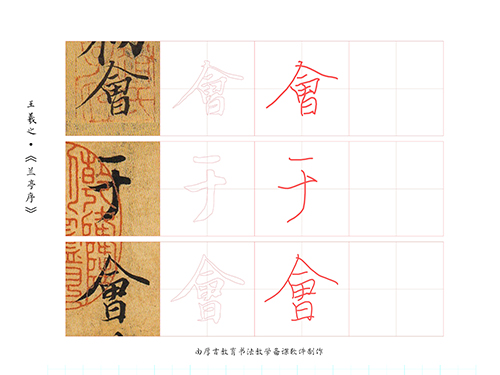 王羲之·《兰亭序》
會 會 會
于 于 于
會 會 會
教育书法教学备课软件制作